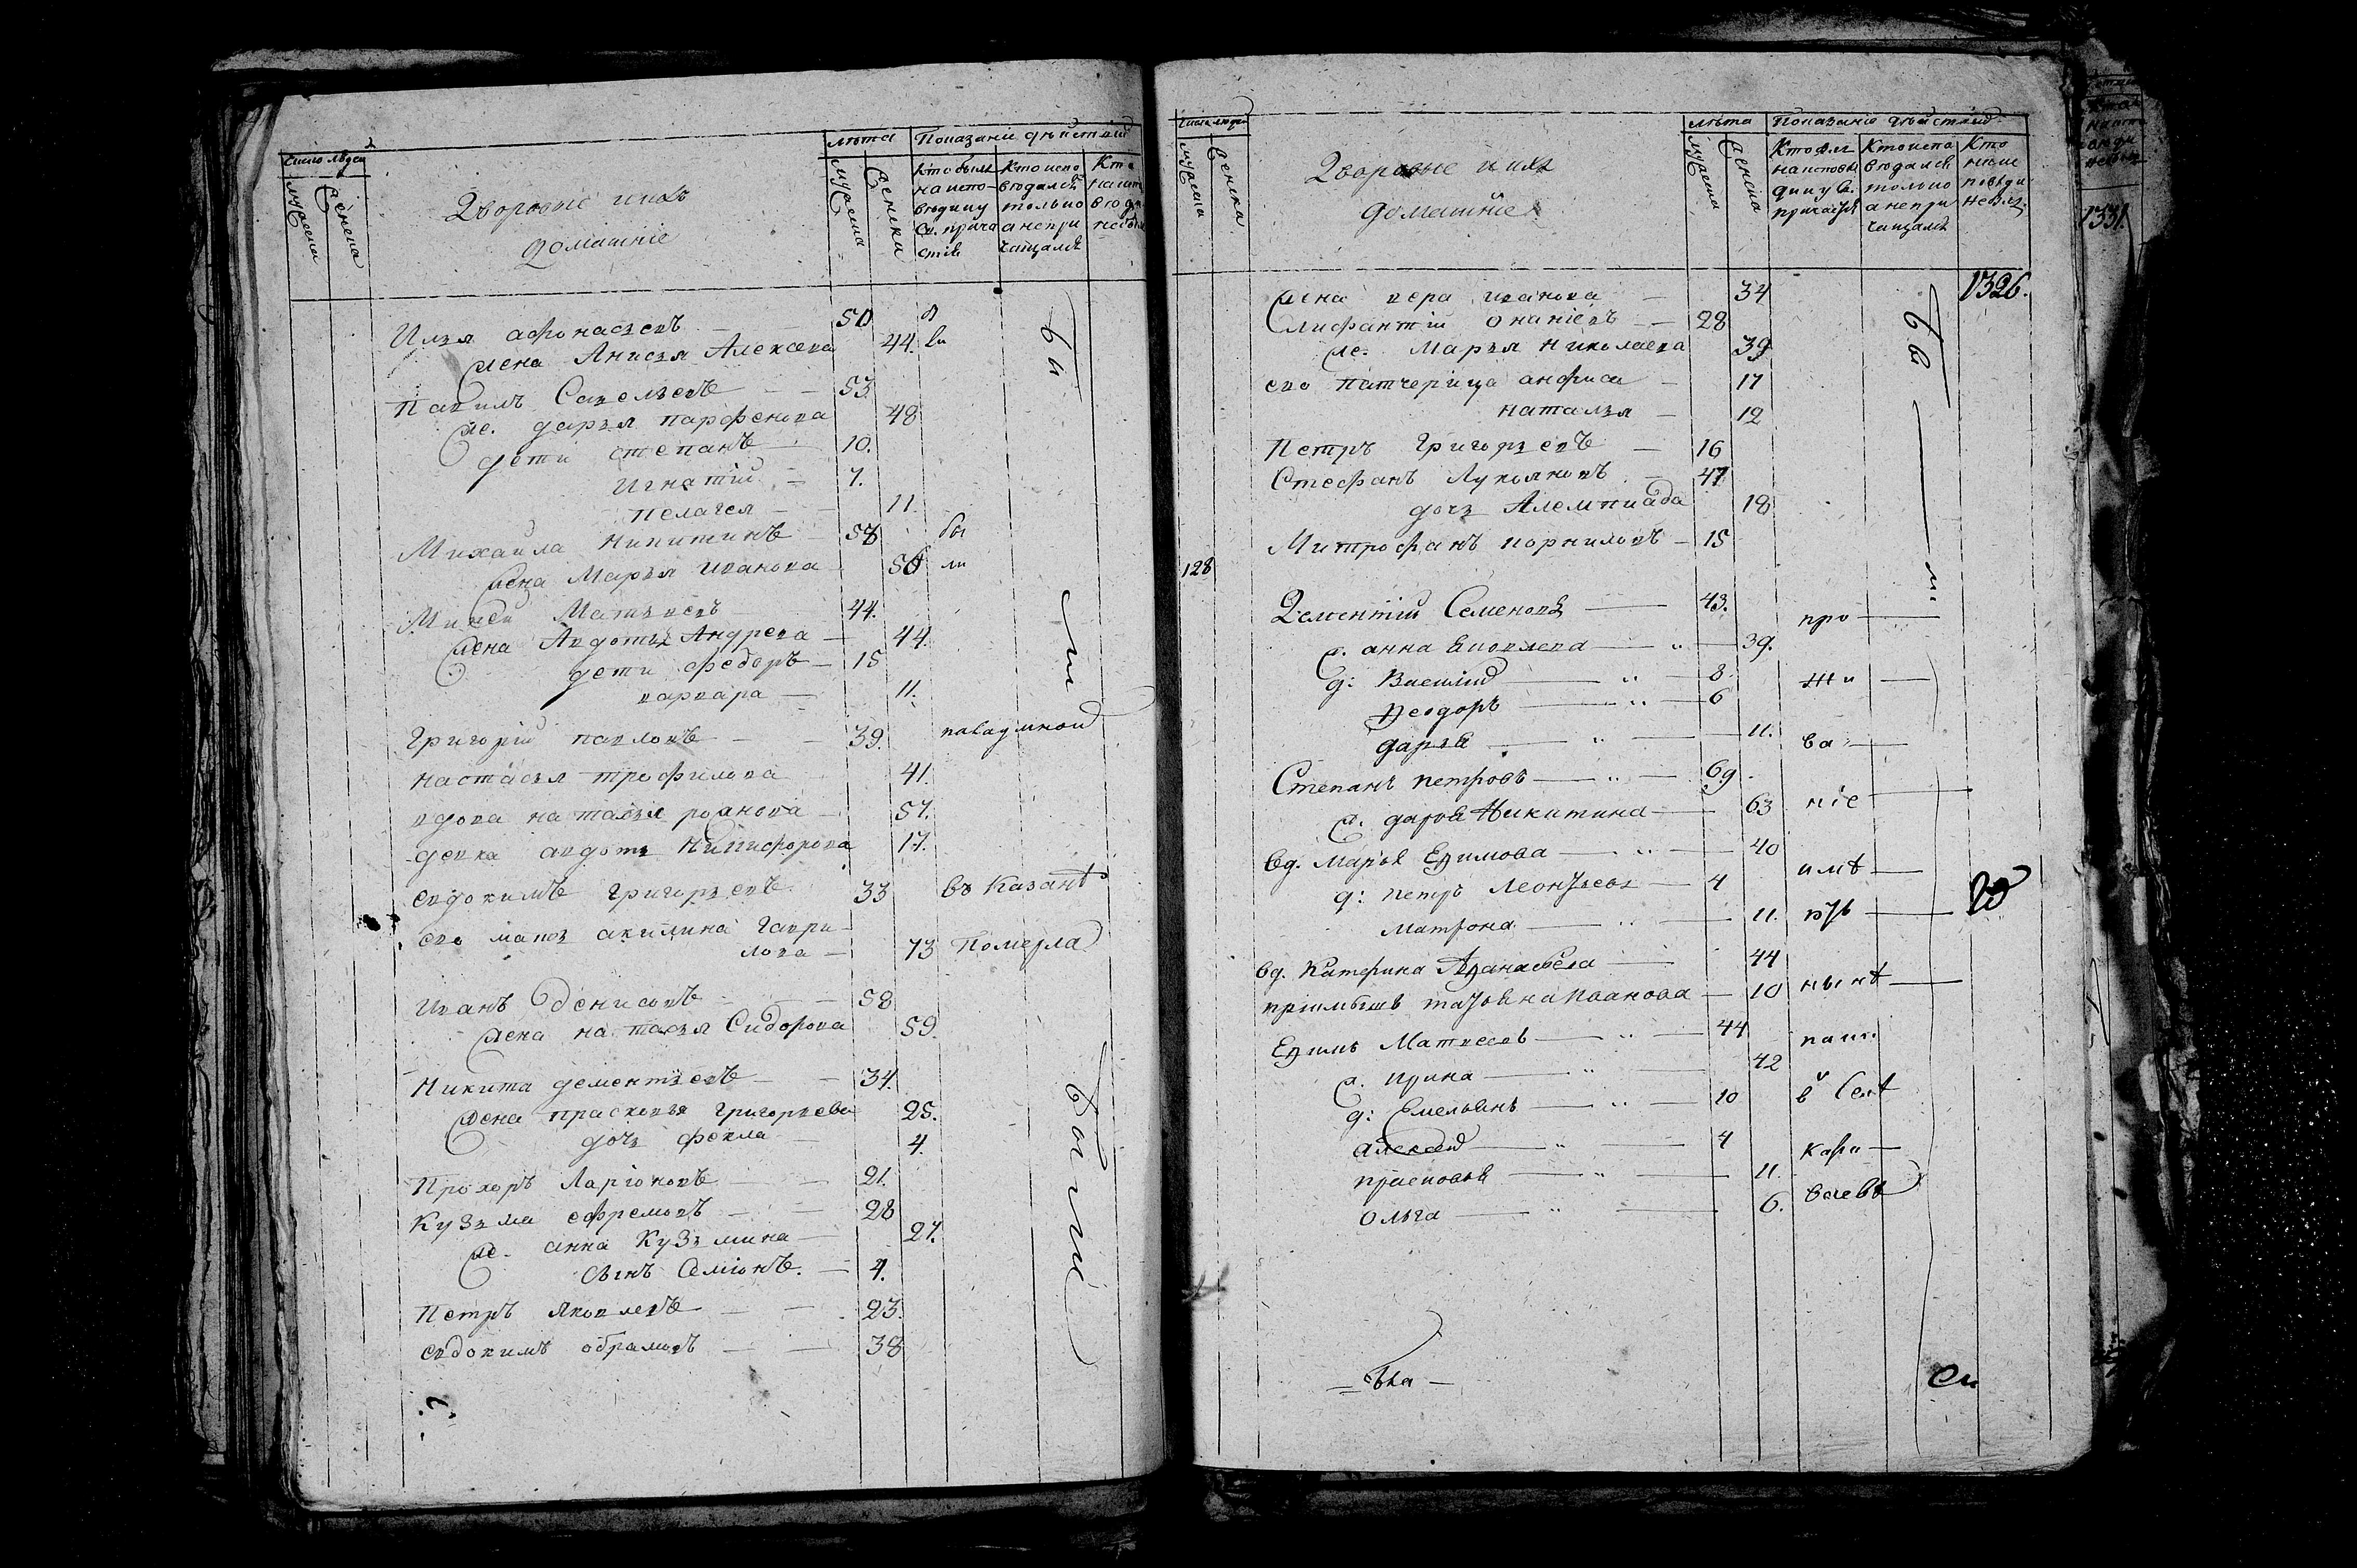 число людей
мужеска
женска
Дворовые и ихъ
домашніе
лѣта
мужеска
женска
Показаніе дѣйствій
Кто былъ на испо-
вѣди и у
св. прича
стія
Кто испо
вѣдался
только
а не при
чащался
Илья афонасьевъ 50
жена Анисья Алексева 44.
Павилъ Савельевъ 53
же. дарья парфенова 48
дети степанъ 10.
Игнатіи 7.
пелагея 11.
Михаила никитинъ 58 бы
жена Марья иванова 50 ли
Миней Матвеевъ 44.
жена Авдотья Андрева 44.
дети федоръ 15
варвара 11.
Григоріи павловъ 39.
настасья трофимова 41.
вдова наталья 57.
девка авдотья Никифорова 17.
евдокимъ григорьевъ 33 въ Казанѣ
его матъ акилина Гаври-
лова 73 Померла
иванъ денисовъ 58
жена наталья Сидорова 59.
Никита дементьевъ 34.
жена прасковья григорьева 25.
дочь фекла 4.
Прохоръ Ларіоновъ 21.
Кузьма ефремовъ 28
же. анна Кузьмина 27.
сынъ Семіонъ. 4.
Петръ яковлевъ 23.
евдокимъ абрамовъ 38
были
число людей
мужеска
женска
Дворовые и ихъ
домашніе
лѣта
мужеска
женска
Показаніе дѣйствій
1326.
жена вера иванова 34
Елифантіи ананіевъ 28
же. Марья николаева 39
его патчерица анфиса 17
наталья 12
Петръ Григорьевъ 16
Стефанъ Лукояновъ 47
дочь Алемпиада 18
Митрофанъ корниловъ 15
128
Дементій Семеновъ 43. про
ж. анна Яковлева 39.
д: Василій 8. жи
Ѳеодоръ 6
дарья 11. ва
Степанъ петровъ 69
ж. дарья Никитина 63 ніе
вд. марья Еѳимова 40 имѣ
д: петръ Леонтьевъ 4
матрона 11. ютъ 20
вд. Катерина Аѳанасьева 44
пріимышъ татьяна Иванова 10 нынѣ
Еѳимъ Матвеевъ 44
ж. ирина 42
д: Емельянъ 10 в селѣ
алексѣй 4 кара
прасковья 11.
ольга 6. ваевѣ
1331.